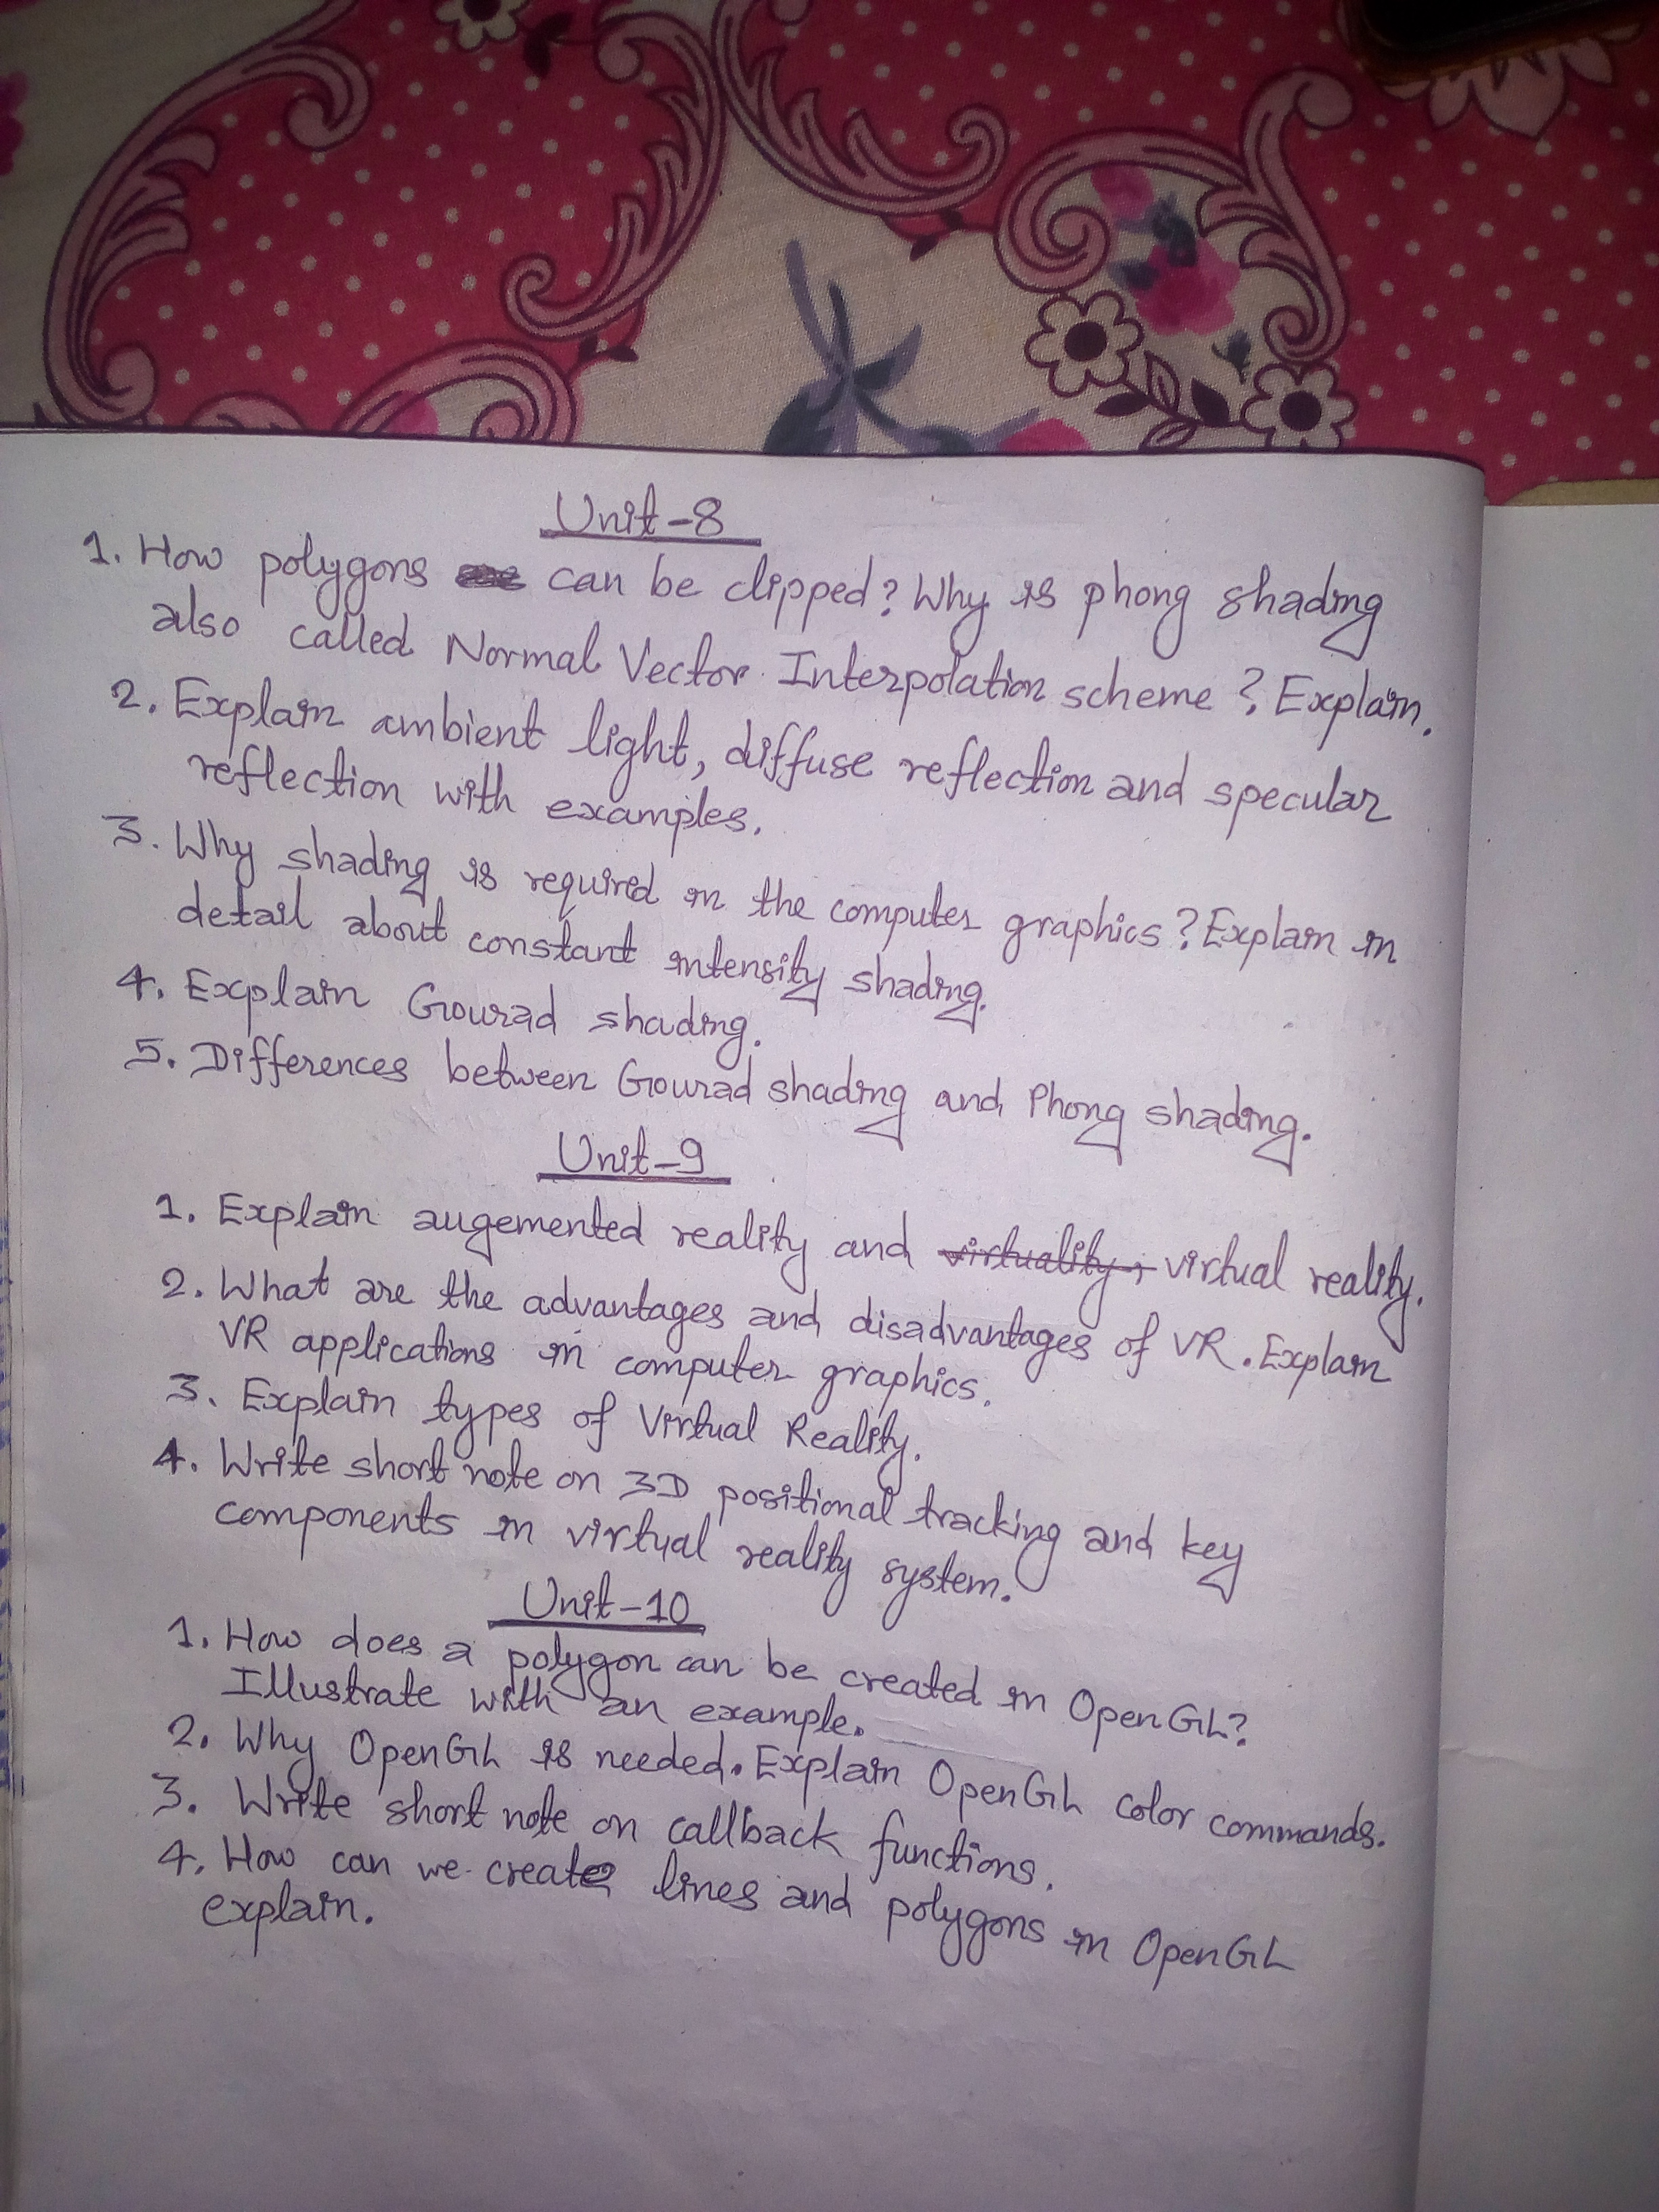 Unit-8
1. How polygons can be clipped? Why is phong shading
also called Normal Vector Interpolation scheme? Explain.
2. Explain ambient light, diffuse reflection and specular
reflection with examples.
3. Why shading is required in the computer graphics? Explain in
detail about constant intensity shading.
4. Explain Gourad shading.
5. Differences between Gourad shading and Phong shading.
Unit-9
1. Explain augemented reality and virtuality, virtual reality.
2. What are the advantages and disadvantages of VR. Explain
VR applications in computer graphics.
3. Explain types of Virtual Reality.
4. Write short note on 3D positional tracking and key
components in virtual reality system.
Unit-10
1. How does a polygon can be created in OpenGL?
Illustrate with an example.
2. Why OpenGL is needed. Explain OpenGL color commands.
3. Write short note on callback functions.
4. How can we create lines and polygons in OpenGL
explain.